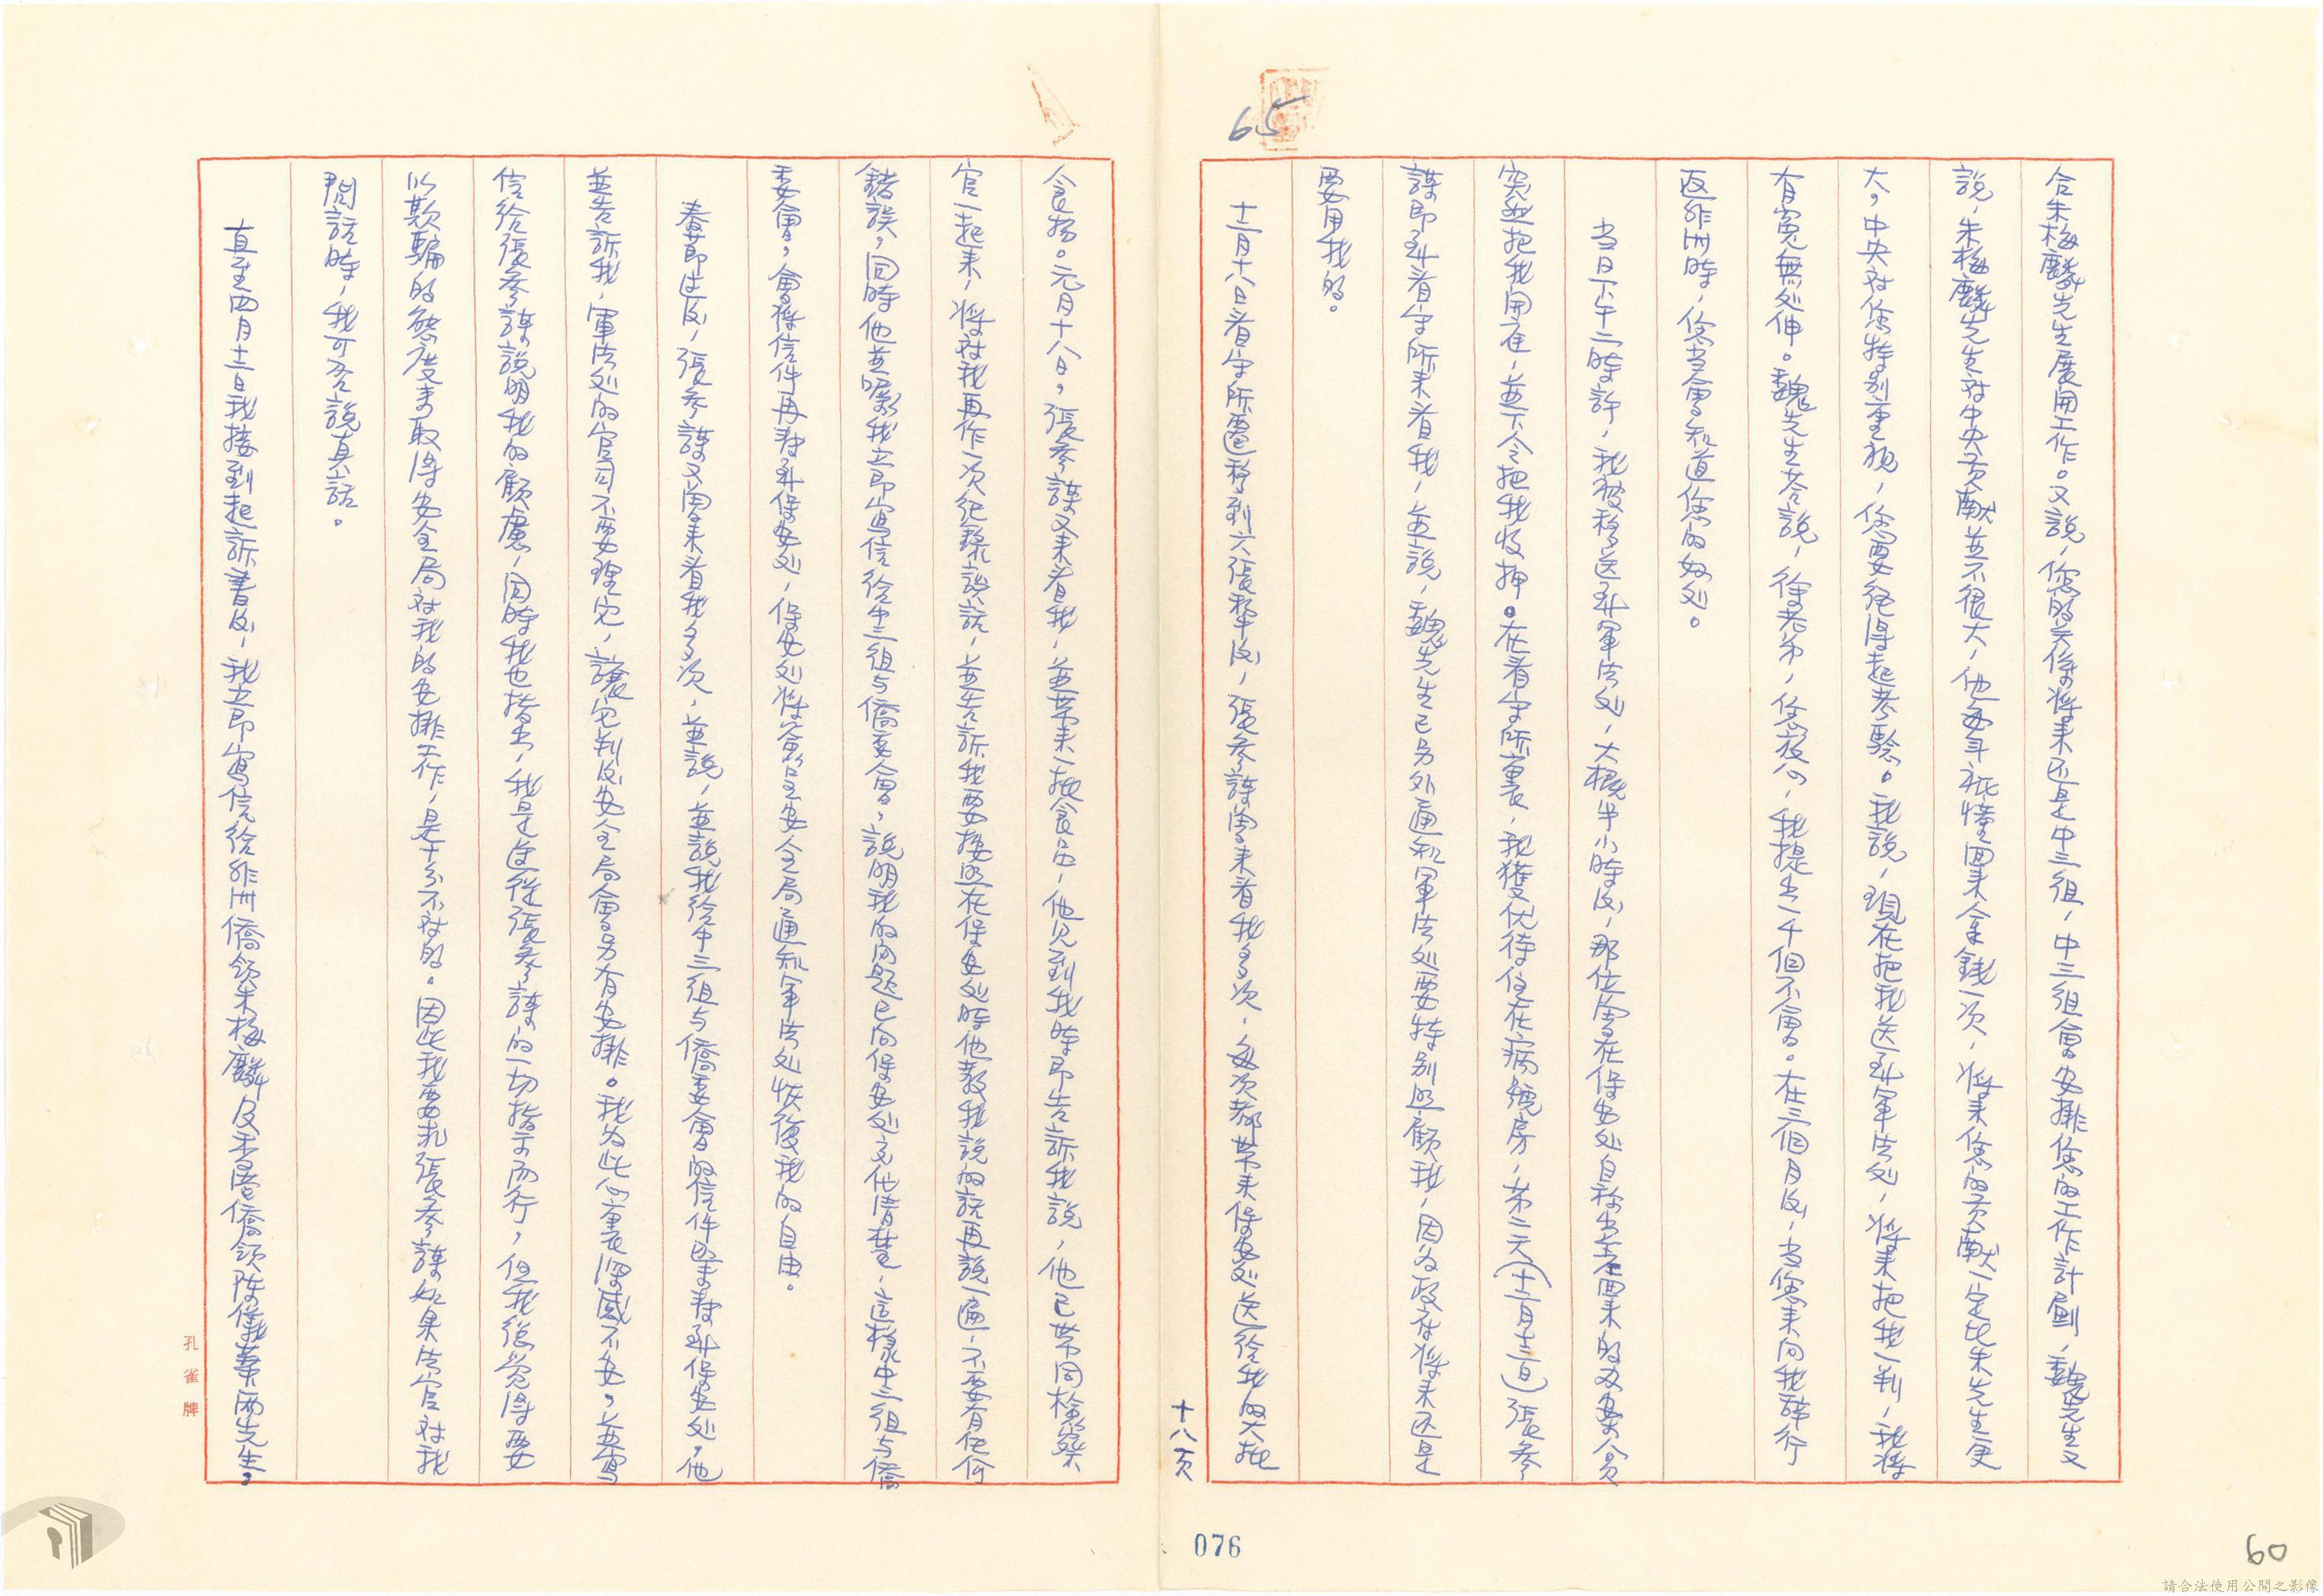 65
合朱梅麟先生展開工作。又說，您的关係將来还是中三組，中三組會安排您的工作計劃，魏先生又
說，朱梅麟先生对中央贡献並不很大，他每年祇憧回来拿錢一次，將来您的贡献一定比朱先生更
大，中央对您特别重視，您要經得起考驗。我說，現在把我送到軍法处，將来把我一判，我將
有冤無处伸。魏先生答說，徐老弟，您放心，我提出一千個不會。在三個月後，当您来向我辞行
返非洲時，您当會知道您的好处。
当日下午二時許，我被移送到軍法处，大概半小時後，那位曾在保安处自称出去回来的及案会員
突然把我開庭，並下令把我收押。在看守所裏，我獲受优待住在病號房，第二天（十二月十三日）張參
謀即到看守所来看我，並說，魏先生已另外通知軍法处要特别照顧我，因为政府將来还是
要用我的。
十二月十八日看守所遷移到六張犁後，張參謀曾来看我多次，每次都带来保安处送給我的大批
十八頁
食物。元月十八日，張參謀又来看我，並带来一批食品，他見到我時即告訴我說，他已带同檢察
官一起来，將对我再作一次紀錄談話，並告訴我要按照在保安处時他教我說的話再說一遍，不要有任何
錯誤，同時他並囑我立即寫信給中三組与僑委會，說明我的问題已向保安处交代清楚，這樣中三組与僑
委會，會將信件再转到保安处，保安处將會呈安全局通知軍法处恢復我的自由。
春節过後，張參謀又曾来看我多次，並說，並說我給中三組与僑委會的信件已转到保安处。他
並告訴我，軍法处的官司不要理它，讓它判後安全局會另有安排。我为此心裏深感不安，並寫
信給張參謀說明我的顧慮，同時我也指出，我是遵從張參謀的一切指示而行，但我總覺得要
以欺騙的態度来取得安全局对我的安排工作，是十分不对的。因此我要求張參謀如果法官对我
問話時，我可否說真話。
直至四月十二日我接到起訴書後，我立即寫信給非洲僑領朱梅麟及香港僑領陈儀蓁兩先生，
孔雀牌
076
60
請合法使用公開之影像